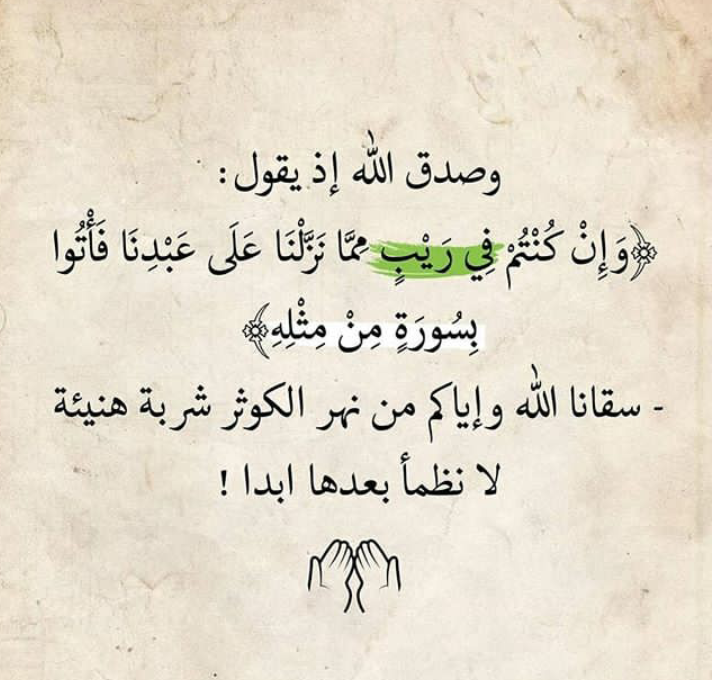 وصدق الله إذ يقول :
﴿وَإِنْ كُنْتُمْ فِي رَيْبٍ مِمَّا نَزَّلْنَا عَلَى عَبْدِنَا فَأْتُوا
بِسُورَةٍ مِنْ مِثْلِهِ﴾
- سقانا الله وإياكم من نهر الكوثر شربة هنيئة
لا نظمأ بعدها ابدا !